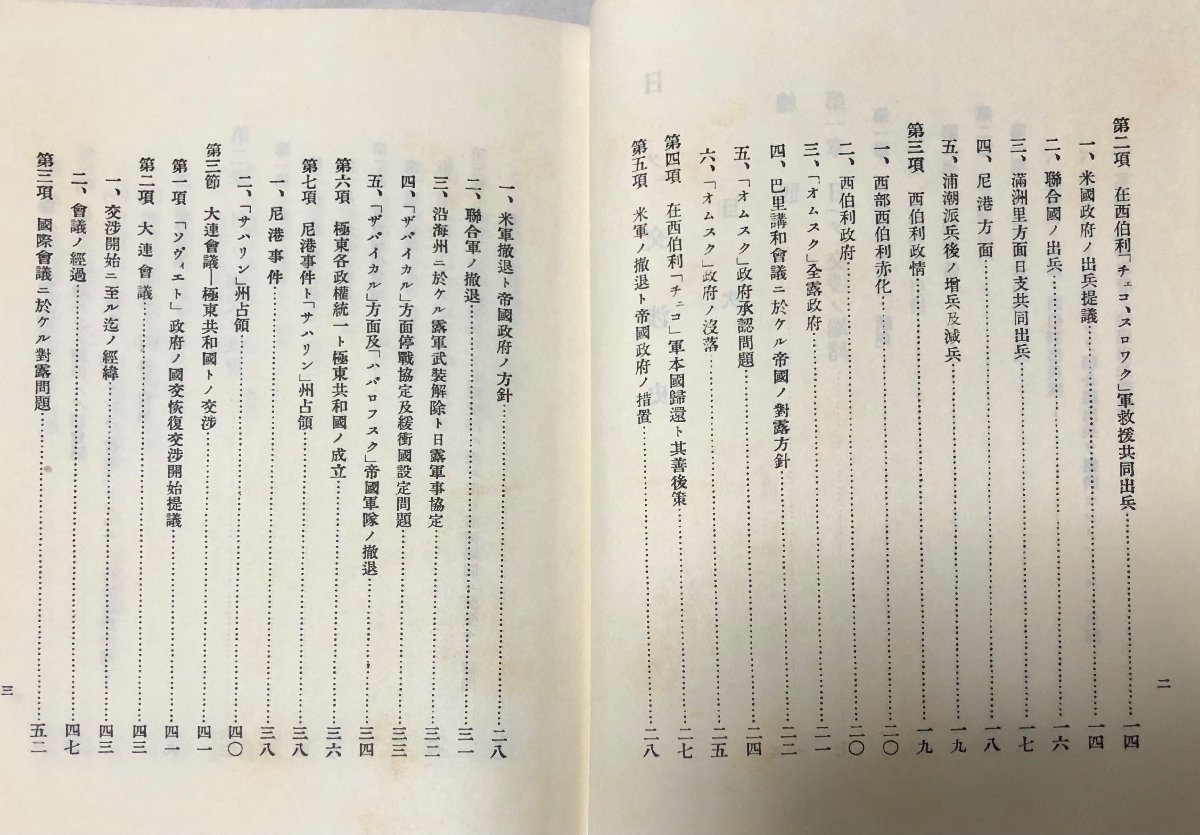 二
第二項 在西伯利「チェコ、スロワク」軍救援共同出兵…一四
一、米國政府ノ出兵提議…一四
二、聯合國ノ出兵…一六
三、滿洲里方面日支共同出兵…一七
四、尼港方面…一八
五、浦潮派兵後ノ增兵及減兵…一九
第三項 西伯利政情…一九
一、西部西伯利赤化…二〇
二、西伯利政府…二〇
三、「オムスク」全露政府…二一
四、巴里講和會議ニ於ケル帝國ノ對露方針…二二
五、「オムスク」政府承認問題…二四
六、「オムスク」政府ノ沒落…二五
第四項 在西伯利「チェコ」軍本國歸還ト其善後策…二七
第五項 米軍ノ撤退ト帝國政府ノ措置…二八
一、米軍撤退ト帝國政府ノ方針…二八
二、聯合軍ノ撤退…三一
三、沿海州ニ於ケル露軍武裝解除ト日露軍事協定…三二
四、「ザバイカル」方面停戰協定及緩衝國設定問題…三三
五、「ザバイカル」方面及「ハバロフスク」帝國軍隊ノ撤退…三四
第六項 極東各政權統一ト極東共和國ノ成立…三六
第七項 尼港事件ト「サハリン」州占領…三八
一、尼港事件…三八
二、「サハリン」州占領…四〇
第三節 大連會議―極東共和國トノ交渉…四一
第一項 「ソヴィエト」政府ノ國交恢復交渉開始提議…四一
第二項 大連會議…四三
一、交渉開始ニ至ル迄ノ經緯…四三
二、會議ノ經過…四七
第三項 國際會議ニ於ケル對露問題…五二
三